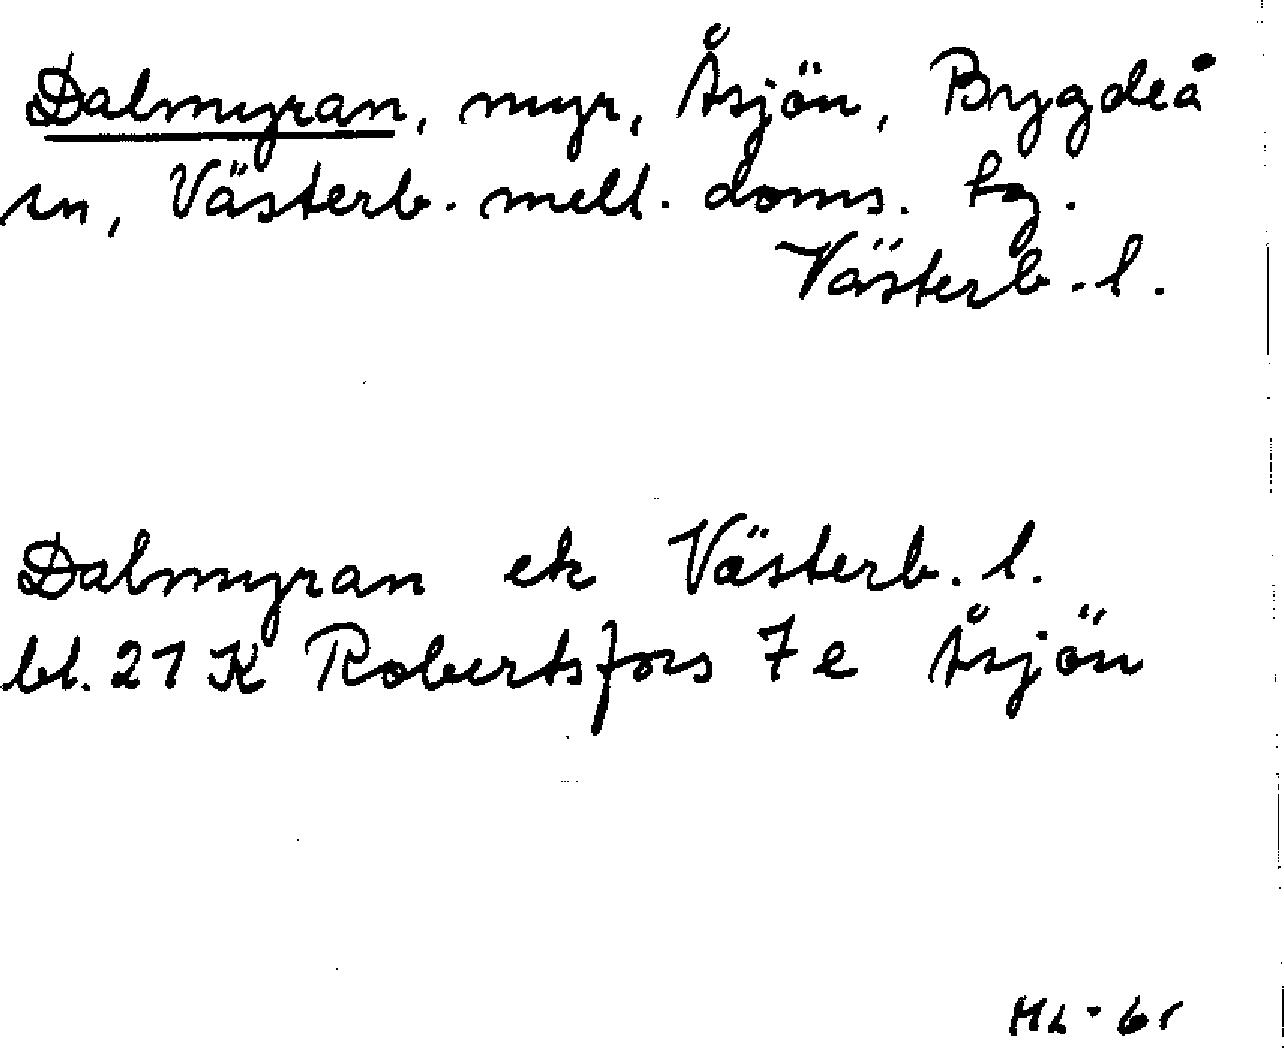 Dalmyran, myr, Åsjön, Bygdeå
sn, Västerb. mell. doms. tg.
Västerb. l.
Dalmyran ek Västerb. l.
bl. 21 K Robertsfors 7 e Åsjön